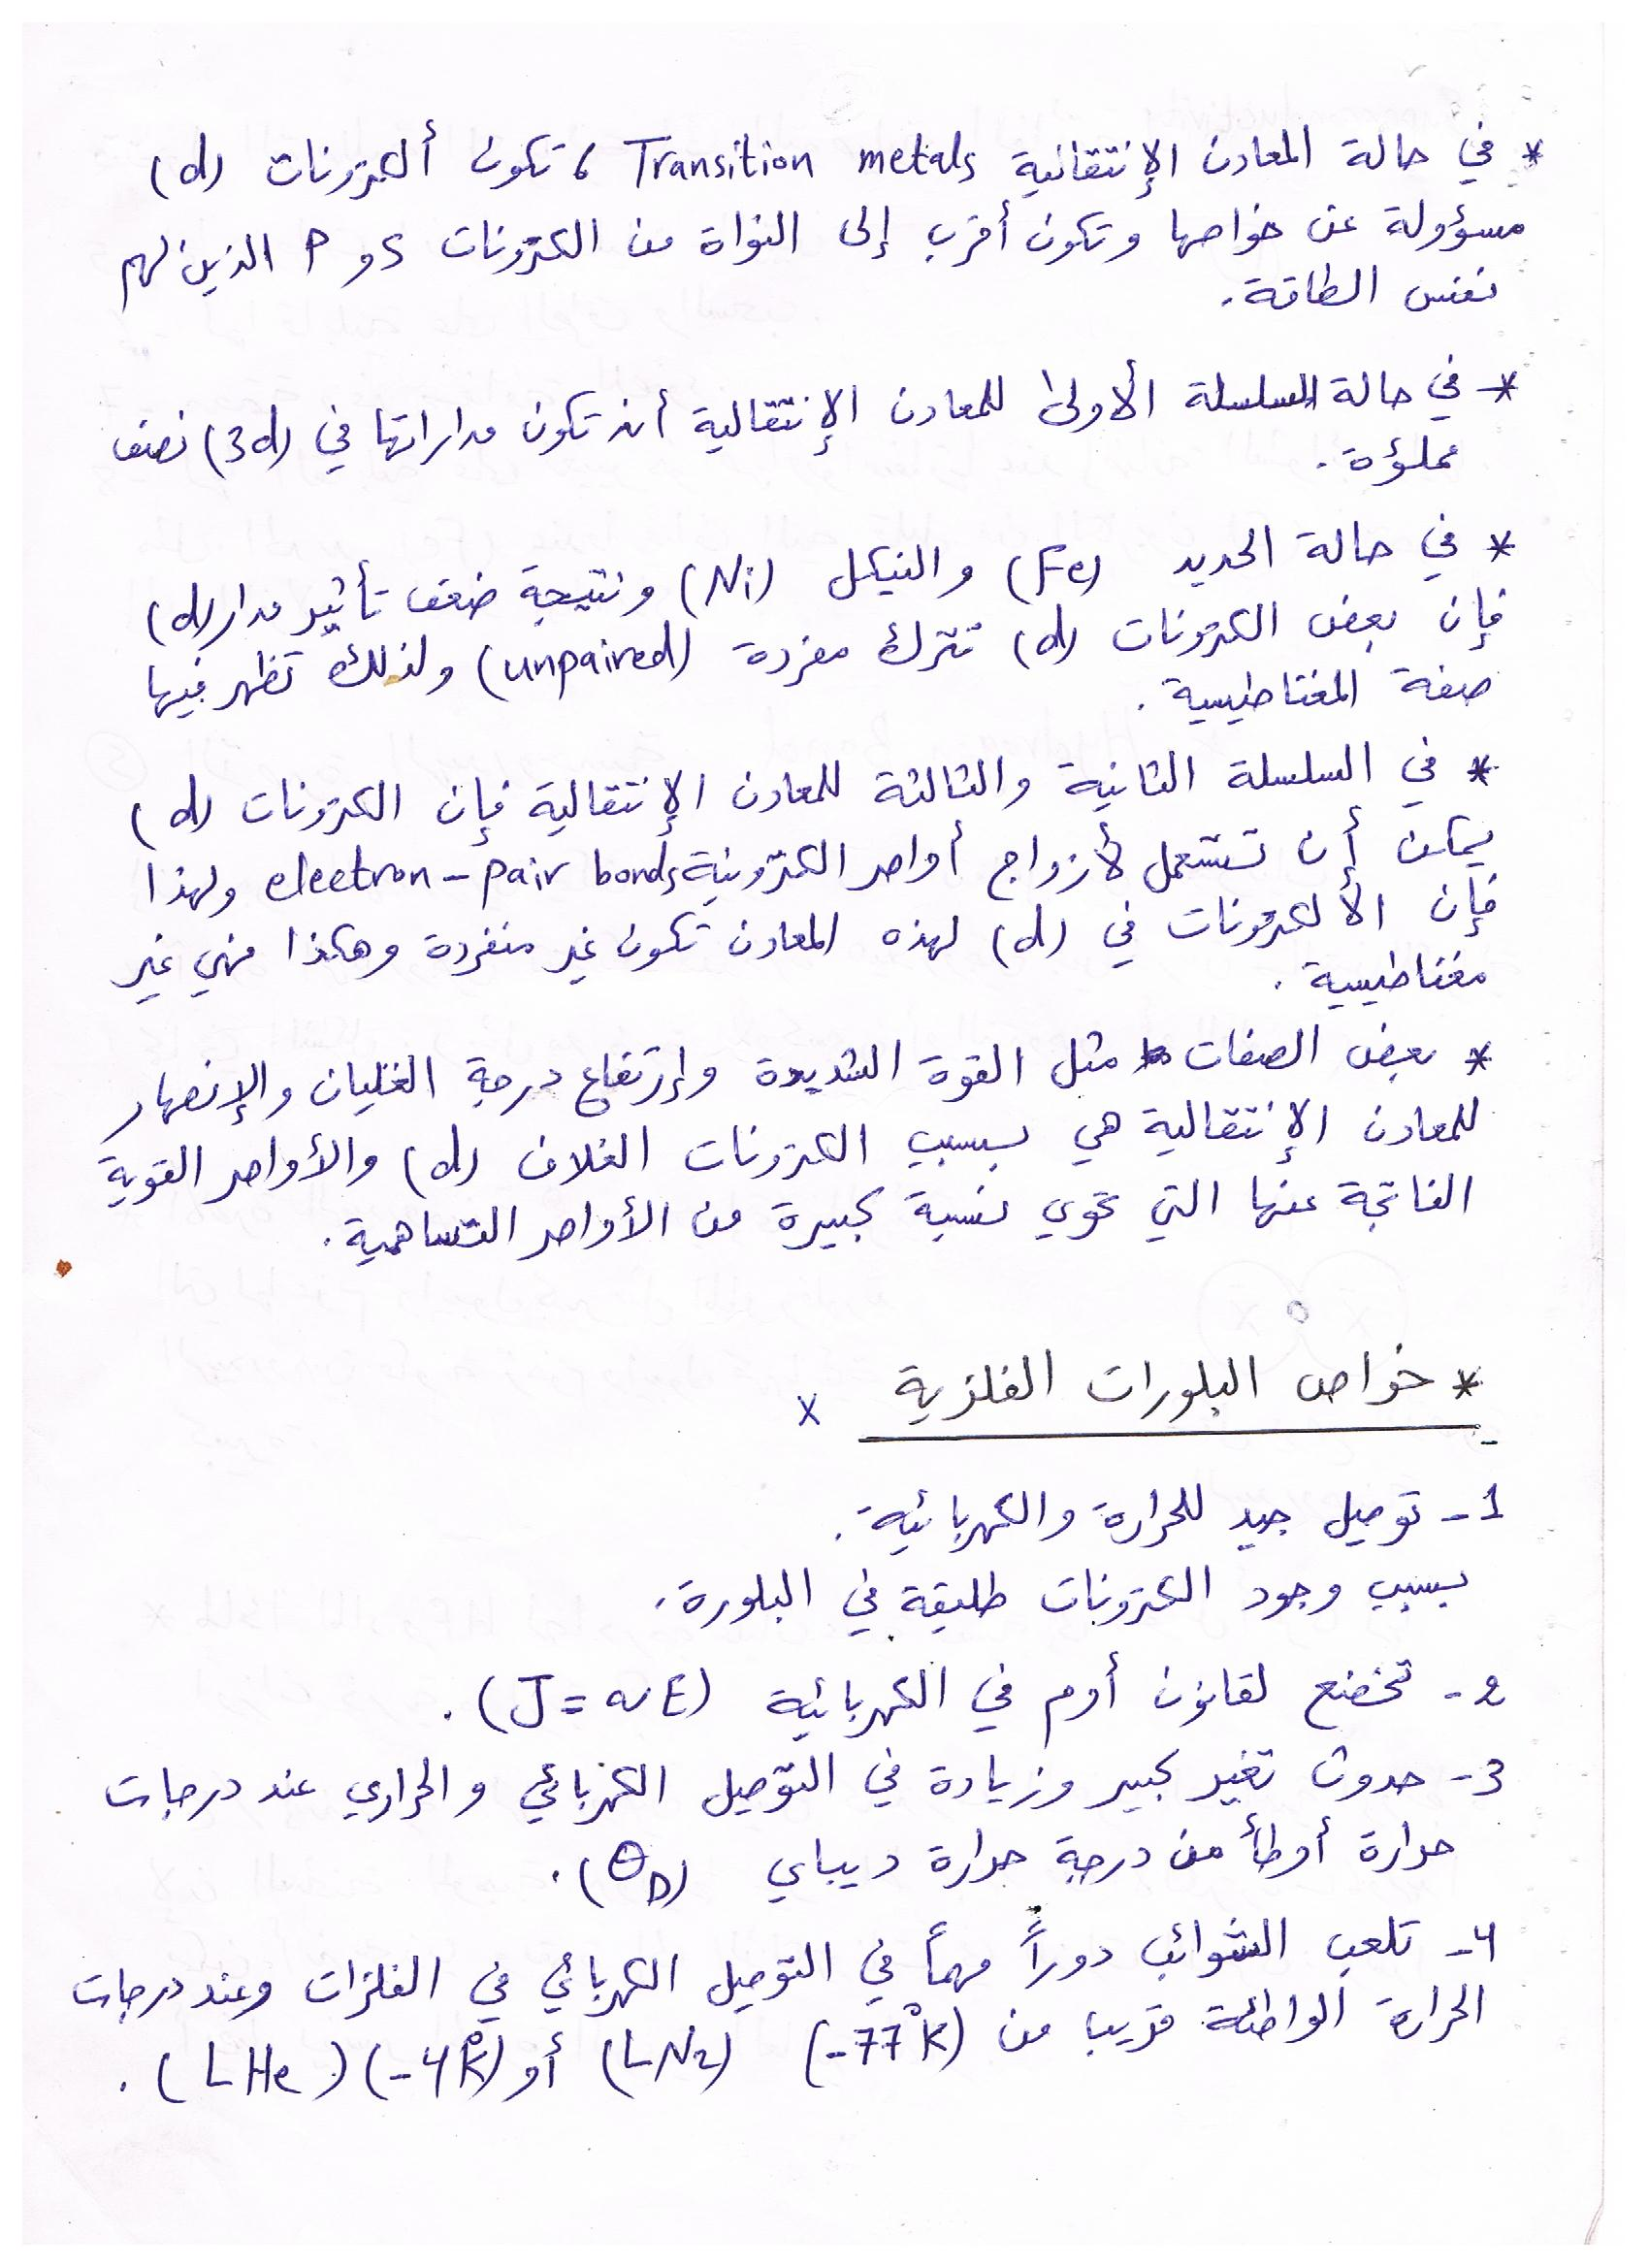 * في حالة المعادن الإنتقالية Transition metals ، تكون ألكترونات (d)
مسؤولة عن خواصها وتكون أقرب إلى النواة من الكترونات s و P الذين لهم
نفس الطاقة.
*- في حالة السلسلة الأولى للمعادن الإنتقالية أن تكون مداراتها في (3d) نصف
مملؤة.
* في حالة الحديد (Fe) والنيكل (Ni) ونتيجة ضعف تأثير مدار (d)
فإن بعض الكترونات (d) تترك مفردة (unpaired) ولذلك تظهر فيها
صفة المغناطيسية.
* في السلسلة الثانية والثالثة للمعادن الإنتقالية فإن الكترونات (d)
يمكن أن تستعمل لأزواج أواصر الكترونية electron-pair bonds ولهذا
فإن الألكترونات في (d) لهذه المعادن تكون غير منفردة وهكذا فهي غير
مغناطيسية.
* بعض الصفات مثل القوة الشديدة وإرتفاع درجة الغليان والإنصهار
للمعادن الإنتقالية هي بسبب الكترونات الغلاف (d) والأواصر القوية
الناتجة عنها التي تحوي نسبة كبيرة من الأواصر التساهمية.
* خواص البلورات الفلزية x
1- توصيل جيد للحرارة والكهربائية.
بسبب وجود الكترونات طليقة في البلورة.
2- تخضع لقانون أوم في الكهربائية (J = σE).
3- حدوث تغير كبير وزيادة في التوصيل الكهربائي والحراري عند درجات
حرارة أوطأ من درجة حرارة ديباي (θD).
4- تلعب الشوائب دوراً مهماً في التوصيل الكهربائي في الفلزات وعند درجات
الحرارة الواطئة قريبا من (-77°K) (LN2) أو (-4°K) (LHe).